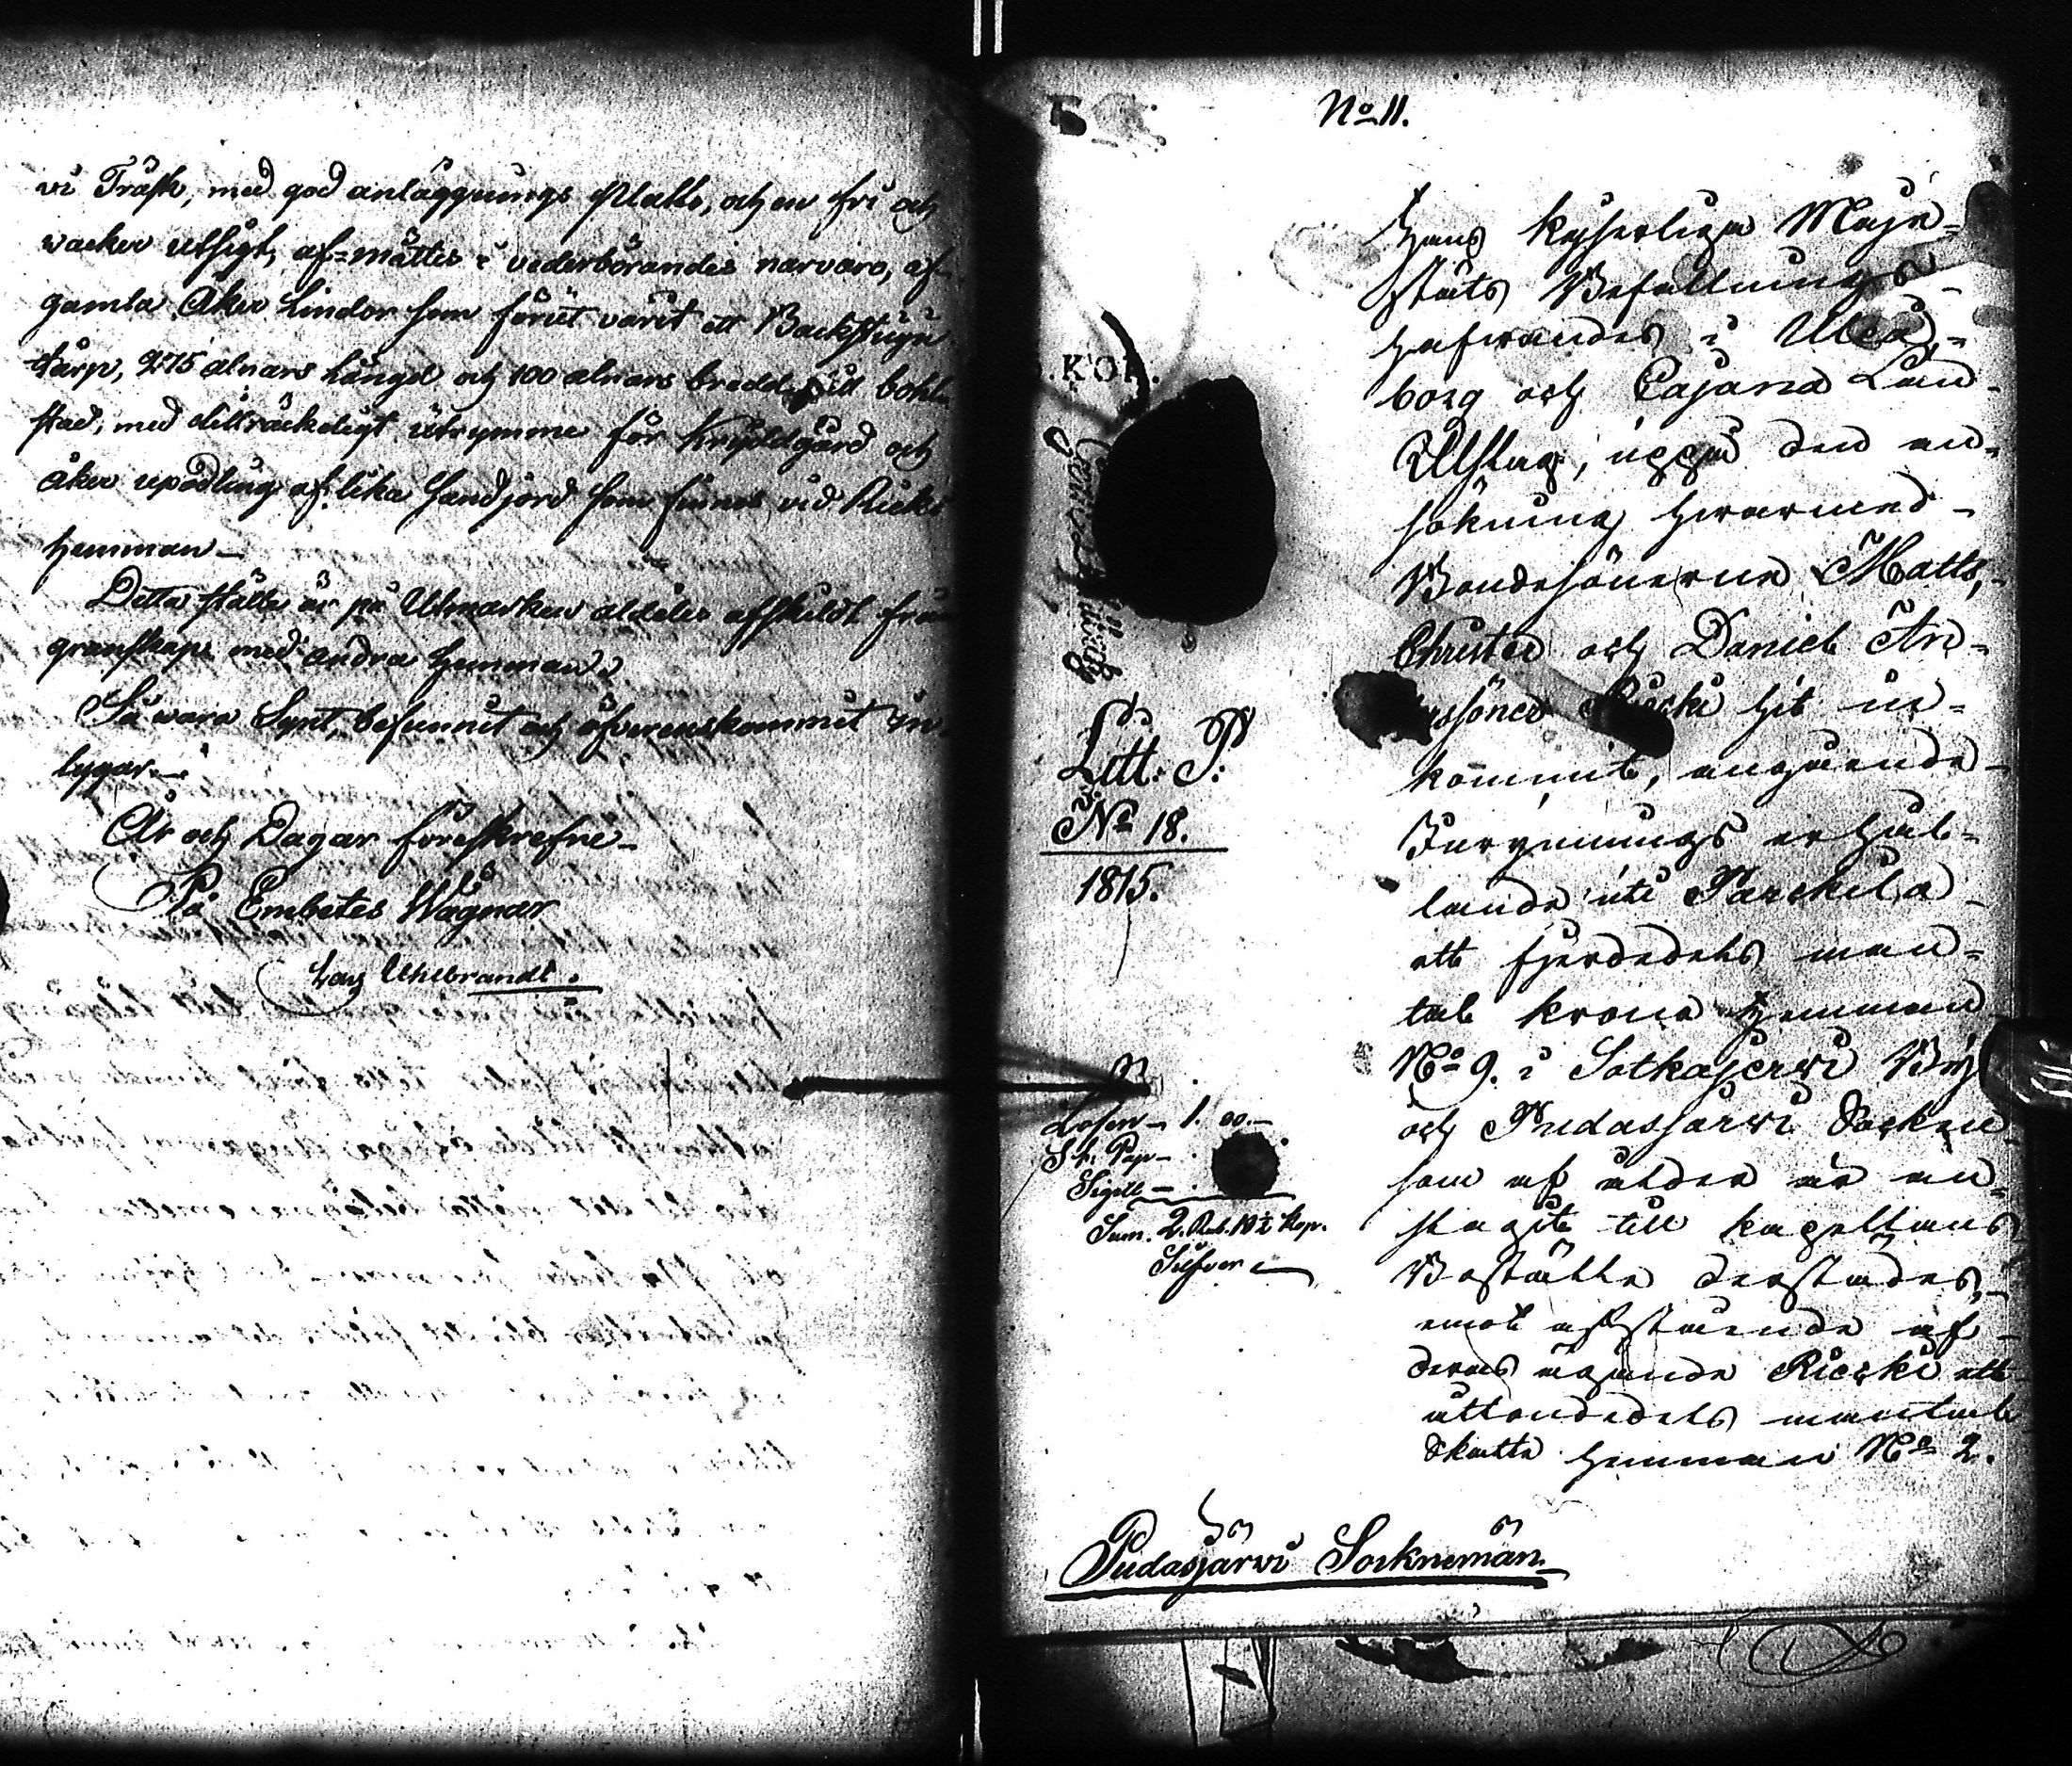 vi Träsk, med god anläggnings plats, och en fri och
wacker utsigt, af-mättes i vederbörandes närvaro, af
gamla Åker Lindor som förut varit ett Backstugu
tårp, 275 alnars längd och 100 alnars bredd till bohl-
stad, med tillräckeligt utrymme för Kryddgård och
åker upodling af lika Sandjord som finnes vid Riecki
hemman
Detta ställe är på Utmarken aldeles afskildt från
granskap med andra hemman.
Så wara Synt, befunnit och öfverenskommit in-
tygar.
År och Dagar föreskrefne
På Embetes Wägnar
Lars Uhlbrandt.
No 11.
Hans Kejserliga Maje-
stäts Befallnings
hafwandes i Uleå-
borg och Cajana Län
Utslag, uppå den an-
sökning hwarmed
Bondesönerne Matts,
Christer och Daniel An-
derssöner Riecki hit in-
kommit, angående
Inrymnings erhål-
lande uti Parckila
ett fjerdedels man-
tal krono hemman
No 9. i Sotkajerwi By
och Pudasjärwi Socken
som af ålder är an-
slagit till kapellans
Boställe derstädes,
emot afstående af
deras ägande Riecki ett
åttondedels mantal
Skatte hemman No 2.
Litt: P:
No 18.
1815.
Lösen 1. 20.
St. Pap
Sigill
Sum. 2. Rub. 10 1/2 Kop.
Silfver
Pudasjärwi Sockneman.